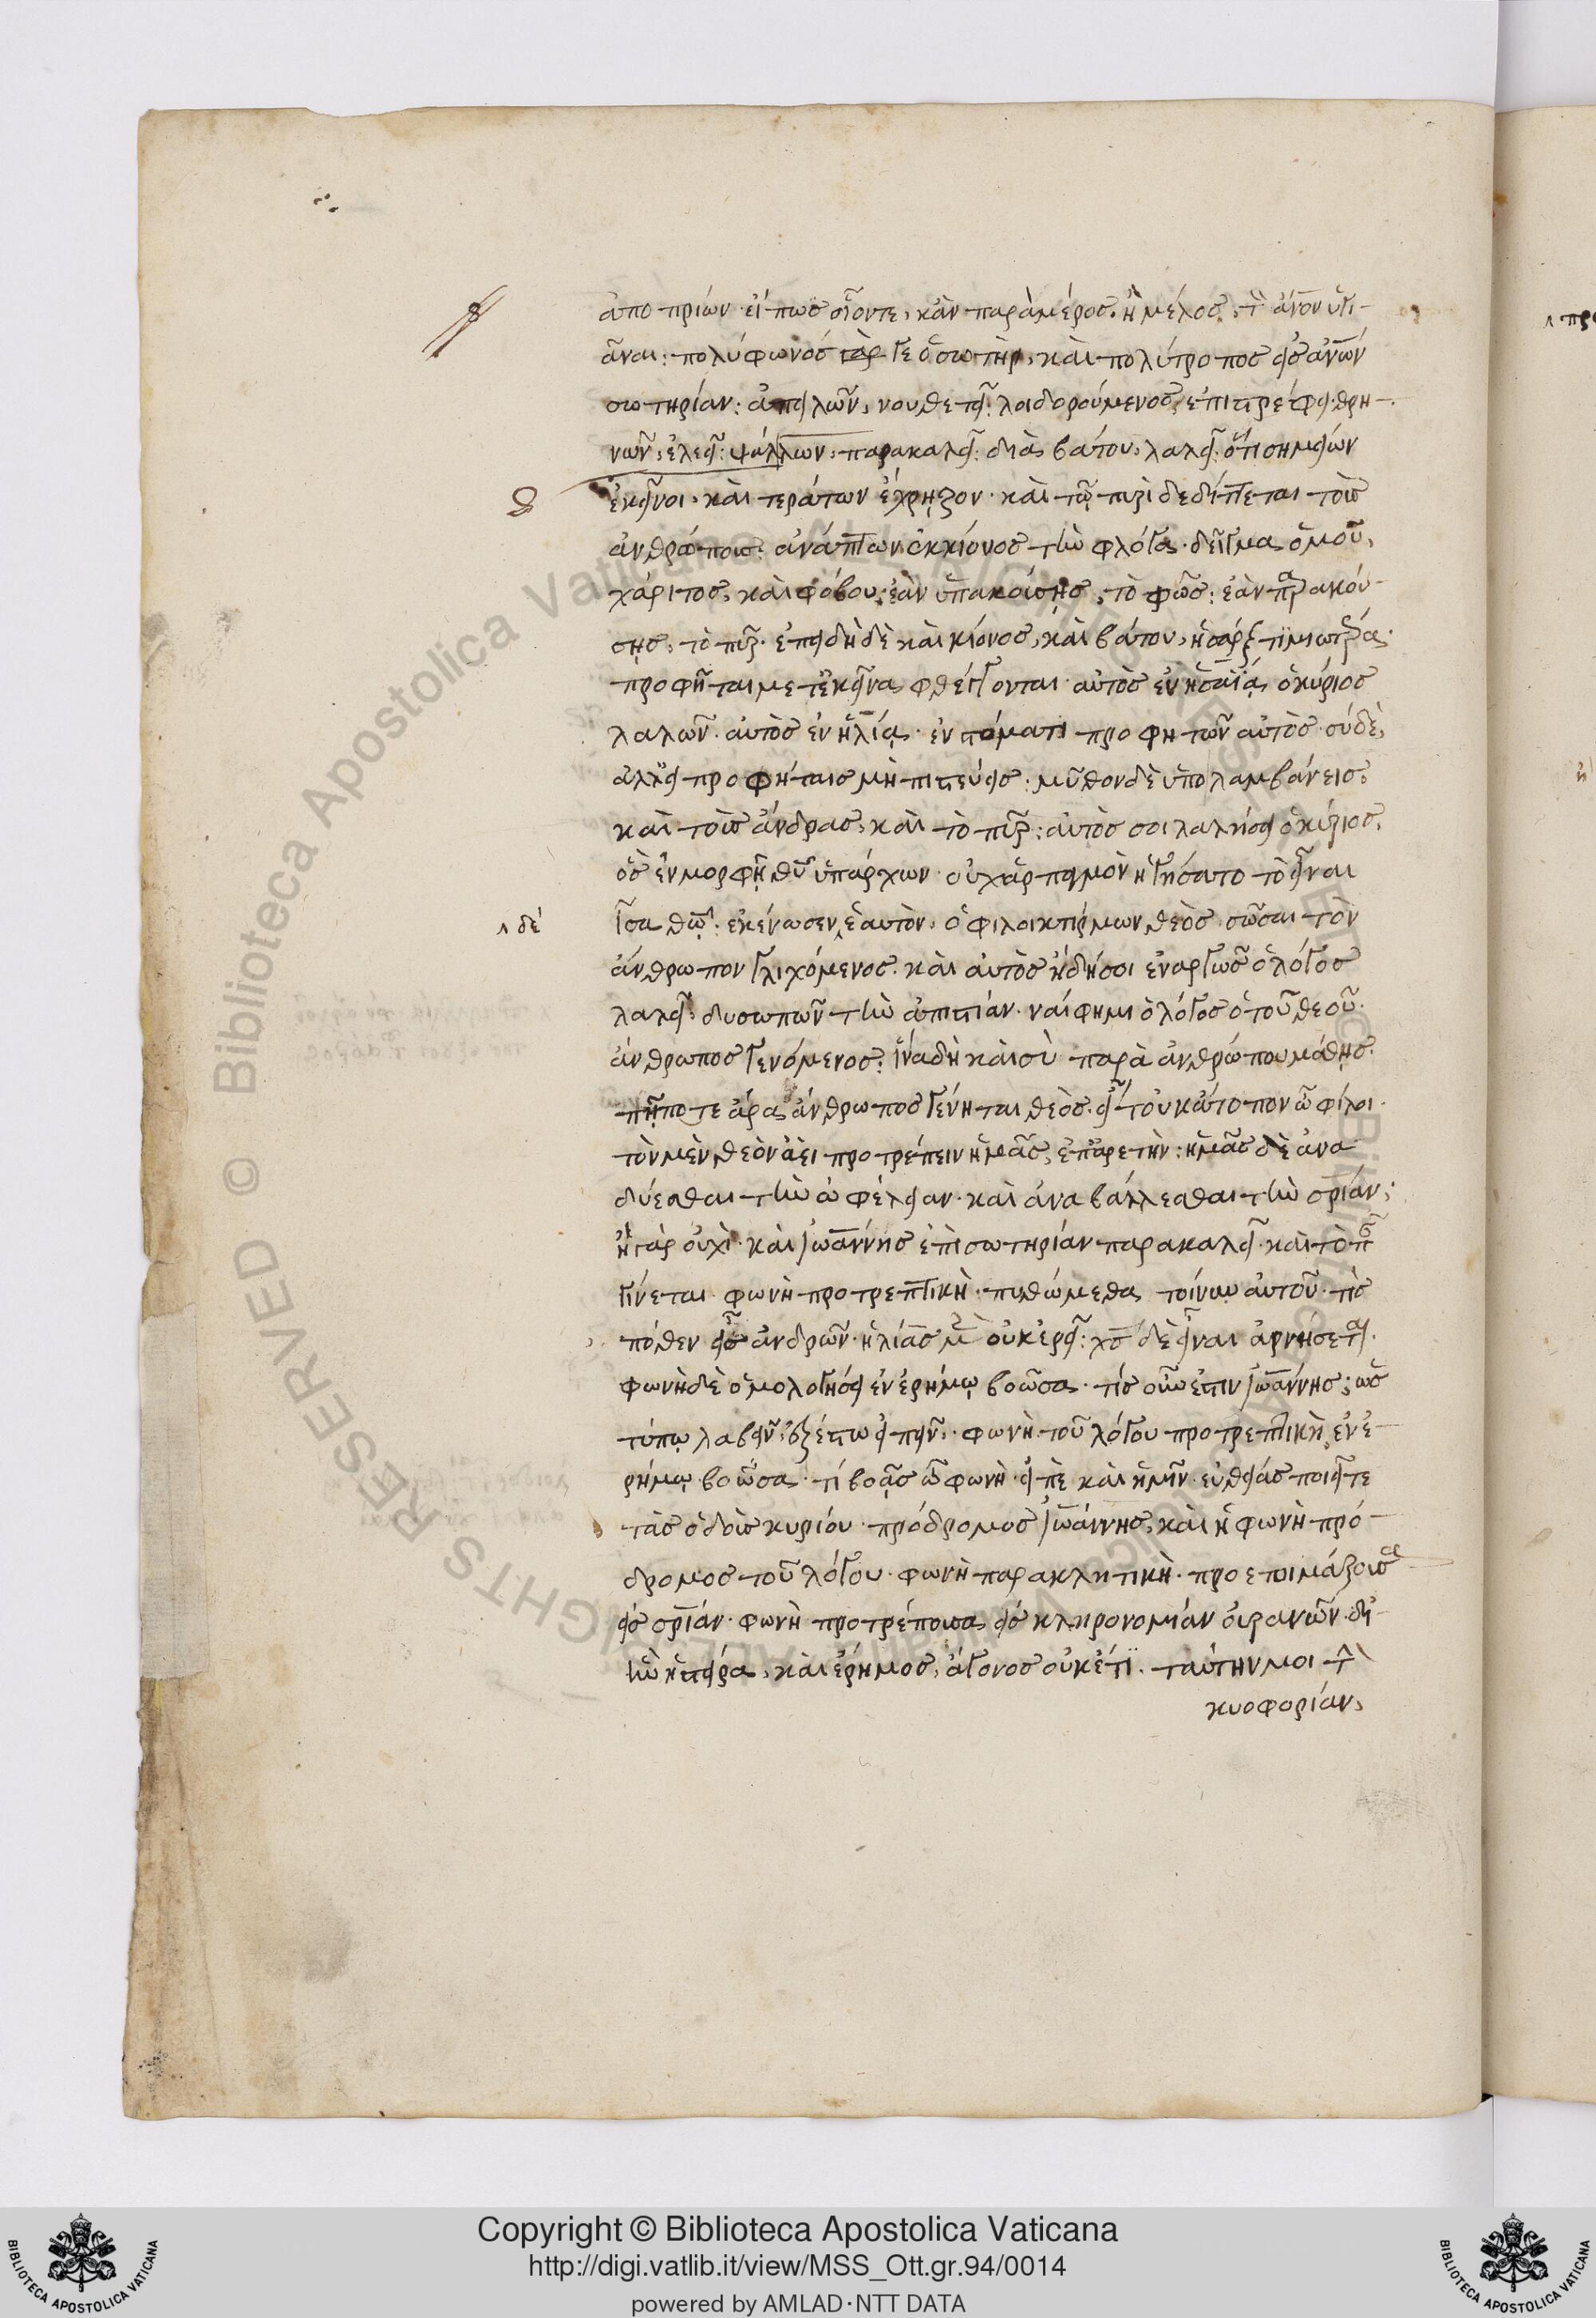 ἀποπρίων· εἴ πως οἷόν τε, κἂν παρὰ μέρος ἢ μέλος, τὸν ἄνον ὑγι-
ᾶναι: πολύφωνός γάρ γε ὁ σωτὴρ, καὶ πολύτροπος εἰς ἀνων
σωτηρίαν: ἀπειλῶν, νουθετεῖ: λοιδορούμενος, ἐπιστρέφει· θρη-
νῶν, ἐλεεῖ: ψάλλων, παρακαλεῖ: διὰ βάτου, λαλεῖ: ὅτι σημείων
ἐκεῖνοι, καὶ τεράτων ἔχρῃζον· καὶ τῷ πυρὶ δεδίττεται τοὺς
ἀνθρώπους· ἀνάπτων ἐκ κίονος τὴν φλόγα· δεῖγμα ὁμοῦ,
χάριτος, καὶ φόβου· ἐὰν ὑπακούσῃς, τὸ φῶς: ἐὰν παρακού-
σῃς, τὸ πῦρ· ἐπειδὴ δὲ καὶ κίονος, καὶ βάτου, ἡ σὰρξ τιμιωτέρα·
προφῆται μετ' ἐκεῖνα φθέγγονται· αὐτὸς ἐν ἡσαΐᾳ ὁ κύριος
λαλῶν· αὐτὸς ἐν ἠλίᾳ· ἐν στόματι προφητῶν αὐτὸς· σὺ δὲ,
ἀλλ' εἰ προφήταις μὴ πιστεύεις· μῦθον δὲ ὑπολαμβάνεις
καὶ τοὺς ἄνδρας, καὶ τὸ πῦρ: αὐτός σοι λαλήσει ὁ κύριος,
ὃς ἐν μορφῇ θυ ὑπάρχων οὐχ ἁρπαγμὸν ἡγήσατο τὸ εἶναι
ἴσα θῷ: ἐκένωσεν ἑαυτὸν· ὁ φιλοικτίρμων θεὸς, σῶσαι τὸν
^ δέ
ἄνθρωπον γλιχόμενος· καὶ αὐτὸς ἤδη σοι ἐναργῶς ὁ λόγος
λαλεῖ, δυσωπῶν τὴν ἀπιστίαν· ναί φημι ὁ λόγος ὁ τοῦ θεοῦ
ἄνθρωπος γενόμενος· ἵνα δὴ καὶ σὺ παρὰ ἀνθρώπου μάθῃς·
πῇ ποτε ἄρα ἄνθρωπος γένηται θεὸς· εἶτ' οὐκ ἄτοπον ὦ φίλοι·
τὸν μὲν θεὸν ἀεὶ προτρέπειν ἡμᾶς, ἐπ' ἀρετὴν: ἡμᾶς δὲ ἀνα-
δύεσθαι τὴν ὠφέλειαν· καὶ ἀναβάλλεσθαι τὴν σρίαν;
ἢ γὰρ οὐχὶ· καὶ ἰωάννης ἐπὶ σωτηρίαν παρακαλεῖ· καὶ τὸ πᾶν
γίνεται φωνὴ προτρεπτικὴ· πυθώμεθα τοίνυν αὐτοῦ· τίς
πόθεν εἶς ἀνδρῶν· ἠλίας μὲν οὐκ ἐρεῖ: χς δὲ εἶναι ἀρνήσεται·
φωνὴ δὲ ὁμολογήσει ἐν ἐρήμῳ βοῶσα· τίς οὖν ἔστιν ἰωάννης; ὡς
τύπῳ λαβεῖν, ἐξέστω εἰπεῖν, φωνὴ τοῦ λόγου προτρεπτικὴ, ἐν ἐ-
ρήμῳ βοῶσα· τί βοᾷς ὦ φωνὴ· εἰπὲ καὶ ἡμῖν· εὐθείας ποιεῖτε
τὰς ὁδοὺς κυρίου· πρόδρομος ἰωάννης, καὶ ἡ φωνὴ πρό-
δρομος τοῦ λόγου· φωνὴ παρακλητικὴ· προετοιμάζουσα
εἰς σρίαν· φωνὴ προτρέπουσα εἰς κληρονομίαν οὐρανῶν· δι'
ἣν ἡ στεῖρα, καὶ ἔρημος, ἄγονος οὐκέτι· ταύτην μοι τὴν
κυοφορίαν,
Copyright © Biblioteca Apostolica Vaticana
http://digi.vatlib.it/view/MSS_Ott.gr.94/0014
powered by AMLAD·NTT DATA